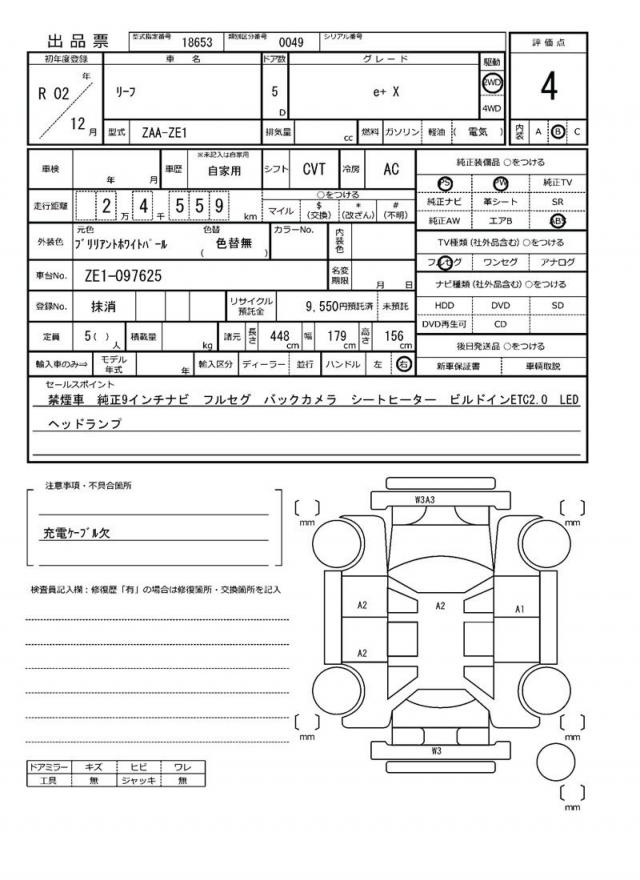 出品票 型式指定番号 18653 類別区分番号 0049 シリアル番号
初年度登録 車 名 ドア数 グレード 駆動 評価点
R 02 年 リーフ 5 D e+ X 2WD 4
4WD
12 月 型式 ZAA-ZE1 排気量 cc 燃料 ガソリン 軽油 ( 電気 ) 内装 A B C
車検 年 月 車歴 ※未記入は自家用 自家用 シフト CVT 冷房 AC 純正装備品 ○をつける
PS PW 純正TV
走行距離 2 万 4 千 5 5 9 km ○をつける 純正ナビ 革シート SR
マイル $ (交換) * (改ざん) # (不明) 純正AW エアB ABS
外装色 元色 ブリリアントホワイトパール 色替 ( 色替無 ) カラーNo. 内装色 TV種類 (社外品含む) ○をつける
フルセグ ワンセグ アナログ
車台No. ZE1-097625 名変期限 月 日 ナビ種類 (社外品含む) ○をつける
登録No. 抹消 リサイクル預託金 9,550円預託済 未預託 HDD DVD SD
DVD再生可 CD
定員 5 ( ) 人 積載量 kg 諸元 長さ 448 cm 幅 179 cm 高さ 156 cm 後日発送品 ○をつける
輸入車のみ⇒ モデル年式 年 輸入区分 ディーラー 並行 ハンドル 左 右 新車保証書 車輌取説
セールスポイント
禁煙車 純正9インチナビ フルセグ バックカメラ シートヒーター ビルドインETC2.0 LED
ヘッドランプ
注意事項・不具合箇所
充電ケーブル欠
検査員記入欄：修復歴「有」の場合は修復箇所・交換箇所を記入
W3A3
mm mm
A2 A2 A1
A2
mm mm
W3
mm
ドアミラー キズ ヒビ ワレ
工具 無 ジャッキ 無